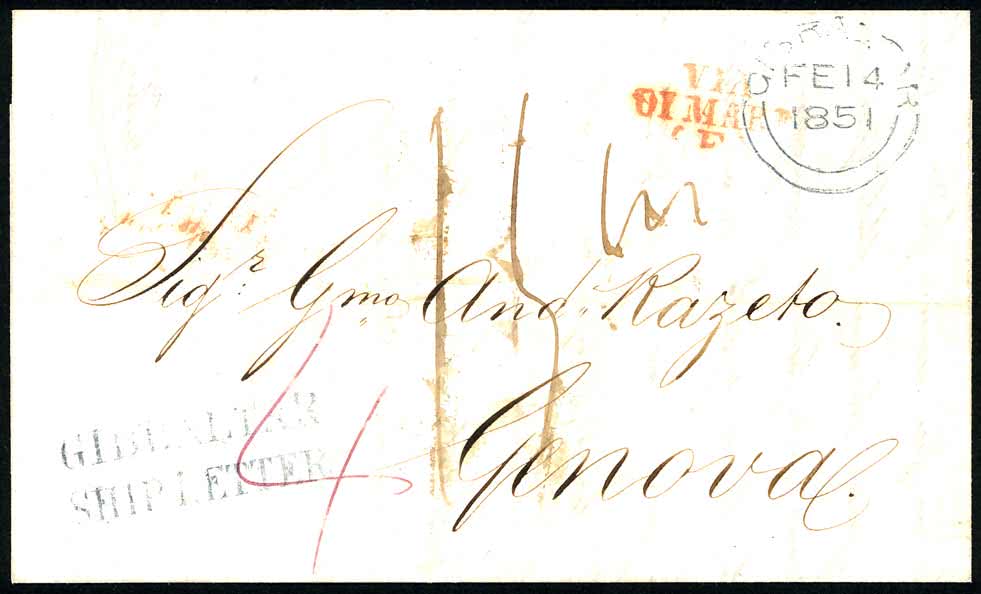 GIBRALTAR
FE 14
1851
VIA
DI MARE
(E
Sigr. Gmo And. Razeto.
Genova.
4
GIBRALTAR
SHIP LETTER